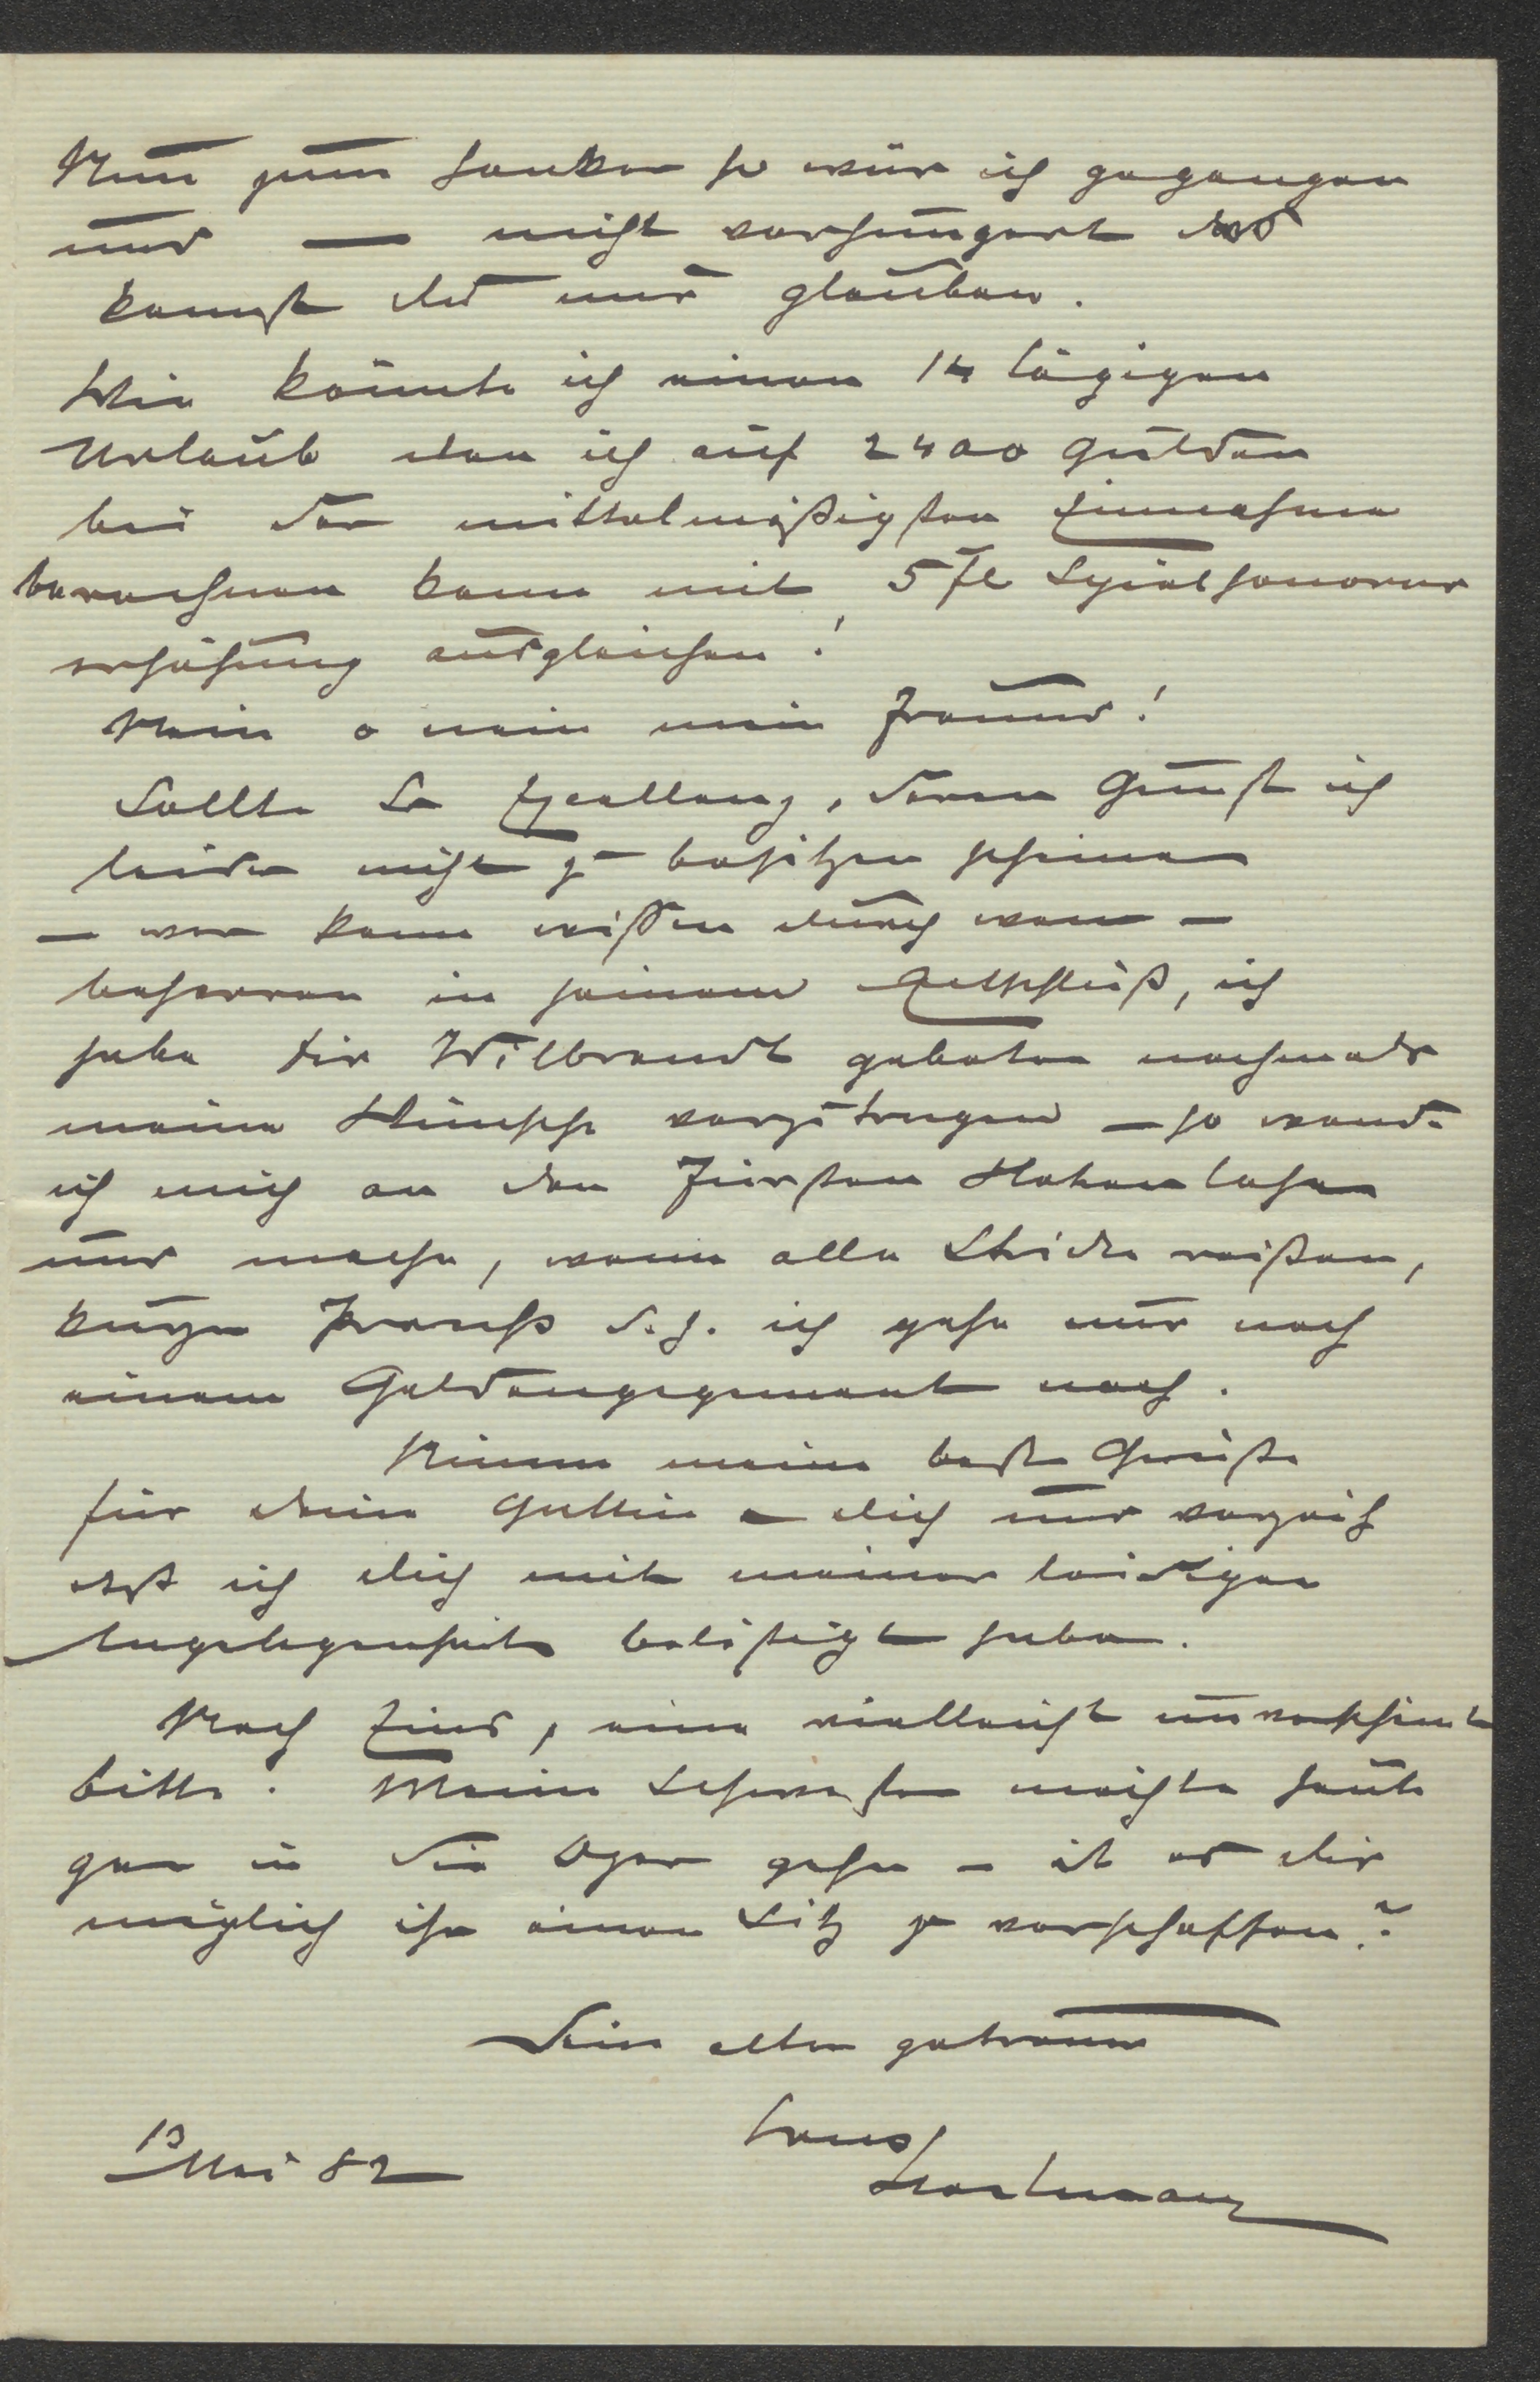 Nun zum Henker so wär ich gegangen
und — nicht verhungert das
kannst du mir glauben.
Wie könnte ich einen 14 tägigen
Urlaub den ich auf 2400 Gulden
bei der mittelmäßigsten Einnahme
berechnen kann mit 5 fl Spielhonorar
erhöhung ausgleichen!
Nein o nein mein Freund!
Sollte Se Excellenz, deren Gunst ich
leider nicht zu besitzen scheine
— wer kann wissen durch wen —
beharren in seinem Entschluß, ich
habe Wilbrandt gebeten nochmals
meine Wünsche vorzutragen — so wende
ich mich an den Fürsten Hohenlohe
und mache, wenn alle Stricke reißen,
kurzen Prozess d. h. ich gehe nur noch
einem Geldengagement nach.
Nimm meine besten Grüße
für deine Gattin u dich und verzeih
daß ich dich mit meiner leidigen
Angelegenheit belästigt habe.
Noch Eins, eine vielleicht unverschämte
Bitte. Meine Schwester möchte heute
gern in die Oper gehen – ist es dir
möglich ihr einen Sitz zu verschaffen?
Dein alter getreuer
Ernst
Hartmann
13 Mai 82